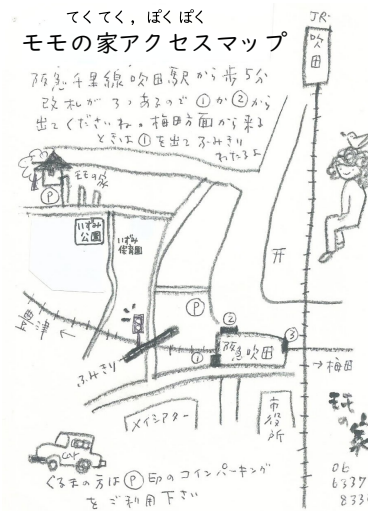 てくてく，ぽくぽく
モモの家アクセスマップ
JR
吹田
阪急千里線吹田駅から歩5分
改札が3つあるので①か②から
出てくださいね。梅田方面から来る
ときは①を出てふみきり
わたるよ
モモの家
P
いずみ
公園
いずみ
保育園
P
②
③
①
阪急吹田
豊津
←
→梅田
ふみきり
メイシアター
市役所
モモ
の
家
06
6337
833
くるまの方はⓅ印のコインパーキング
をご利用下さい